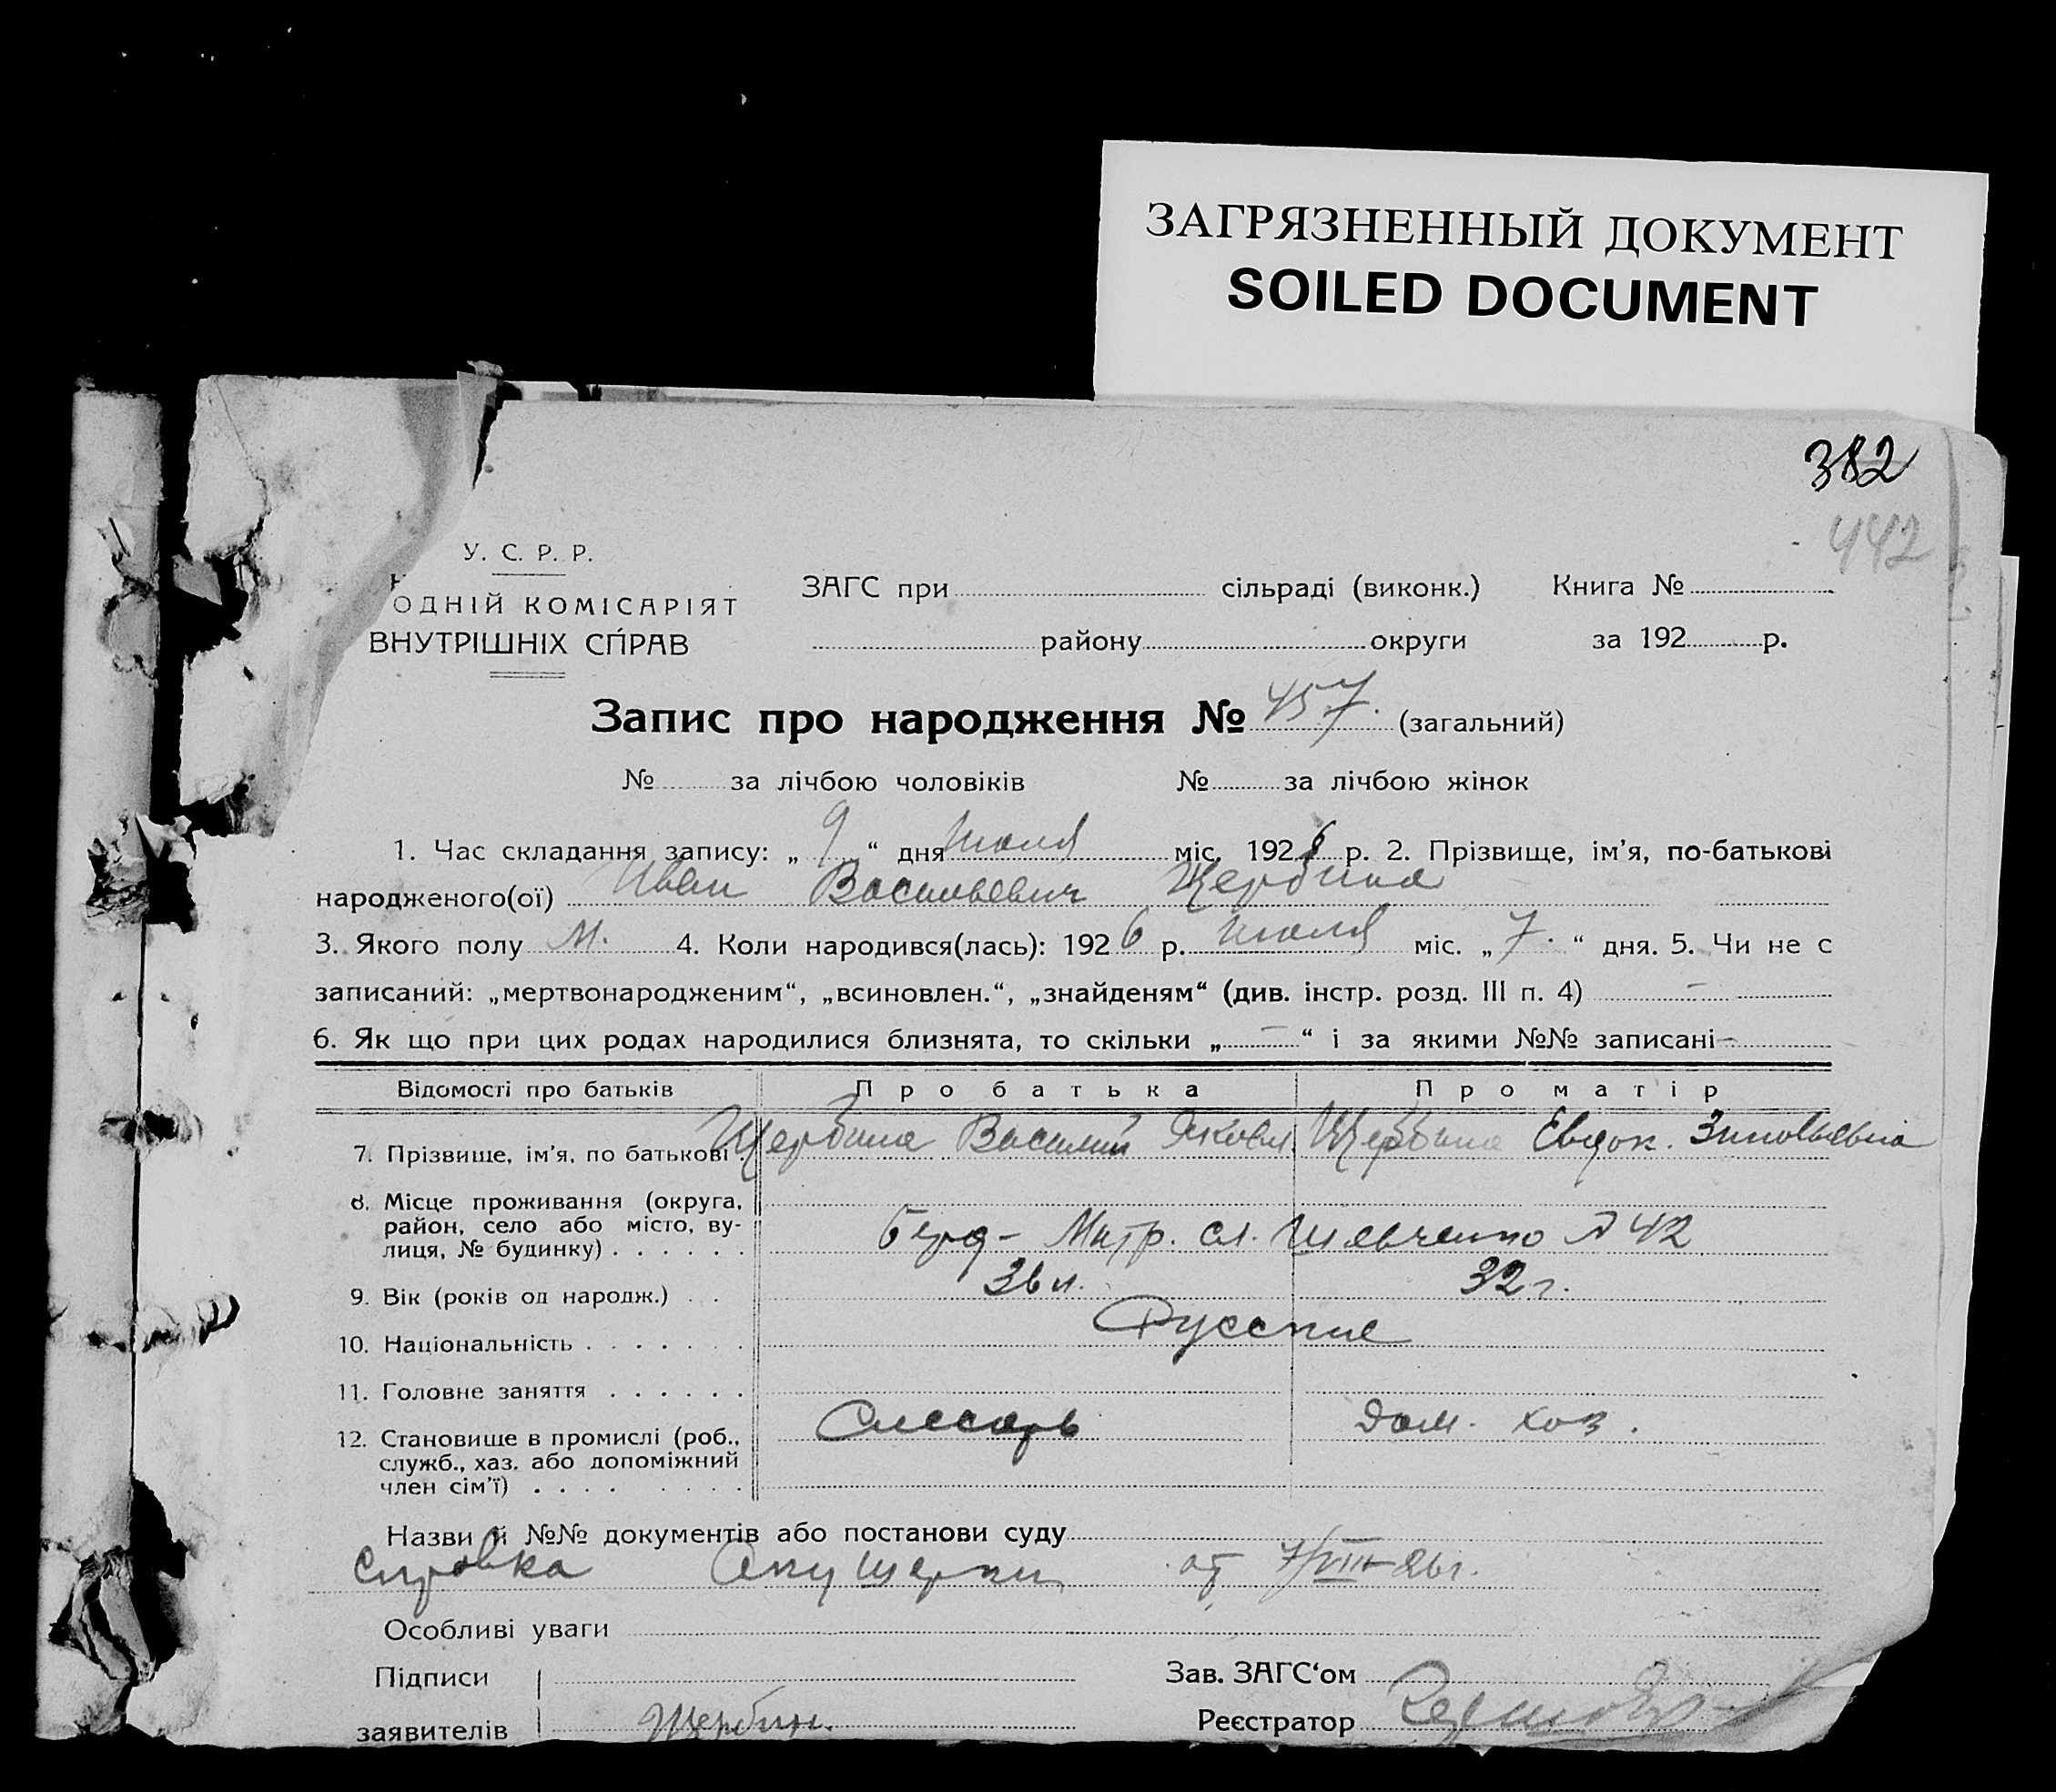 ЗАГРЯЗНЕННЫЙ ДОКУМЕНТ
SOILED DOCUMENT
382
442
У. С. Р. Р.
ОДНІЙ КОМІСАРІЯТ
ВНУТРІШНІХ СПРАВ
ЗАГС при сільраді (виконк.) Книга №
району округи за 192 р.
Запис про народження № 457. (загальний)
№ за лічбою чоловіків № за лічбою жінок
1. Час складання запису: „ 9 “ дня июля міс. 1926 р. 2. Прізвище, ім'я, по-батькові
народженого(ої) Иван Васильевич Щербина
3. Якого полу м. 4. Коли народився(лась): 1926 р. июля міс. „ 7. “ дня. 5. Чи не є
записаний: „мертвонародженим“, „всиновлен.“, „знайденям“ (див. інстр. розд. III п. 4) –
6. Як що при цих родах народилися близнята, то скільки „ – “ і за якими №№ записані –
Відомості про батьків Про батька Про матір
7. Прізвище, ім'я, по батькові Щербина Василий Яковл. Щербина Евдок. Зиновьевна
8. Місце проживання (округа,
район, село або місто, ву-
лиця, № будинку) . . . . . . Шевченко № 42
9. Вік (років од народж.) . . 36 л. 32 г.
10. Національність . . . . . . . Русские
11. Головне заняття . . . . . .
12. Становище в промислі (роб., Слесарь дом. хоз.
служб., хаз. або допоміжний
член сім'ї) . . . . . . . .
Назви й №№ документів або постанови суду
Справка Акушерки от 7/VIII-26г.
Особливі уваги
Підписи Зав. ЗАГС'ом
заявителів Щербин. Реєстратор